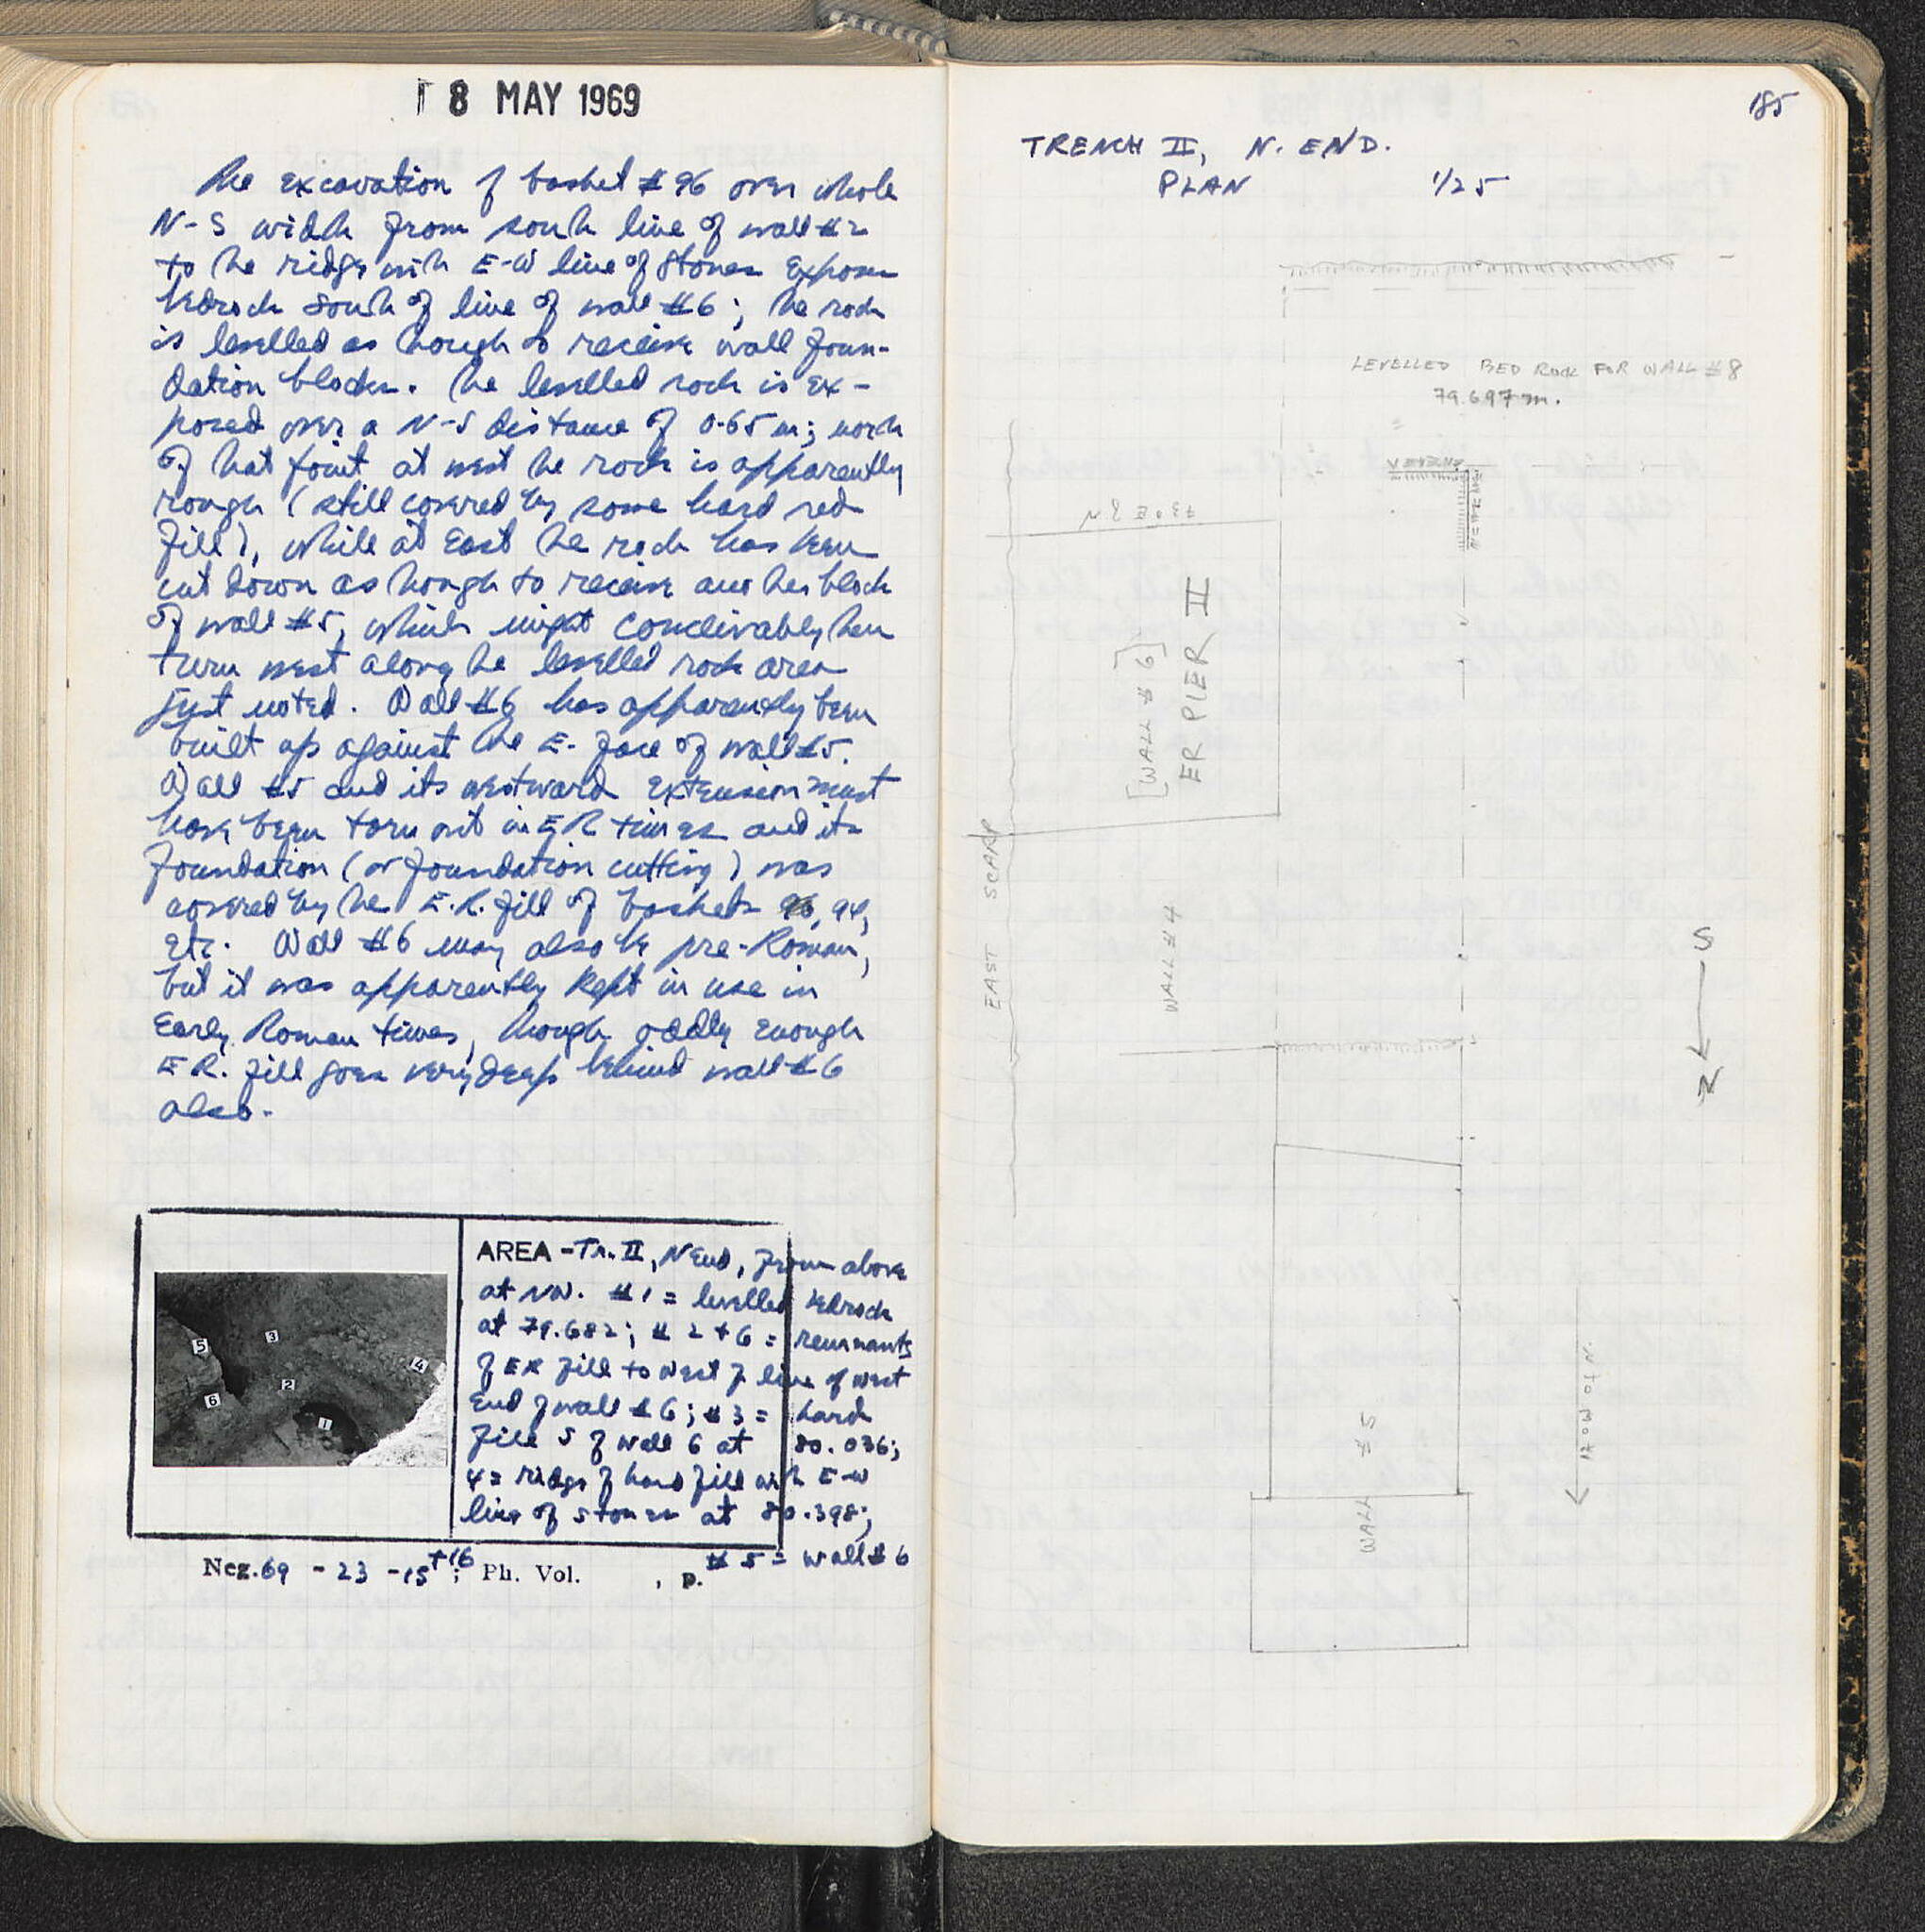 8 MAY 1969
The excavation of basket #96 over whole
N-S width from south line of wall #2
to the ridge with E-W line of stones exposes
bedrock south of line of wall #6; the rock
is levelled as though to receive wall foun-
dation blocks. The levelled rock is ex-
posed over a N-S distance of 0.65 m; north
of that point at west the rock is apparently
rough (still covered by some hard red
fill), while at East the rock has been
cut down as though to receive another block
of wall #5, which might conceivably then
turn west along the levelled rock area
just noted. Wall #6 has apparently been
built up against the E. face of wall #5.
Wall #5 and its westward extension must
have been torn out in ER times and its
foundation (or foundation cutting) was
covered by the E.R. fill of baskets 96, 94,
etc. Wall #6 may also be pre-Roman,
but it was apparently kept in use in
Early Roman times, though oddly enough
ER. fill goes very deep behind wall #6
also.
AREA - Tr. II, N End, from above
at NW. #1 = levelled bedrock
at 79.682; #2+6 = remnants
of ER fill to West of line of west
end of wall #6; #3 = hard
fill S of wall 6 at 80.036;
4 = ridge of hard fill with E-W
line of stones at 80.398;
#5 = wall #6
Neg. 69 - 23 - 15+16; Ph. Vol. , p.
5
3
4
2
6
1
185
TRENCH II, N. END.
PLAN 1/25
LEVELLED BED ROCK FOR WALL #8
79.697 m.
73° E of N
[WALL #6]
ER PIER II
EAST SCARP
WALL #4
S
N
12° W of N.
WALL #5